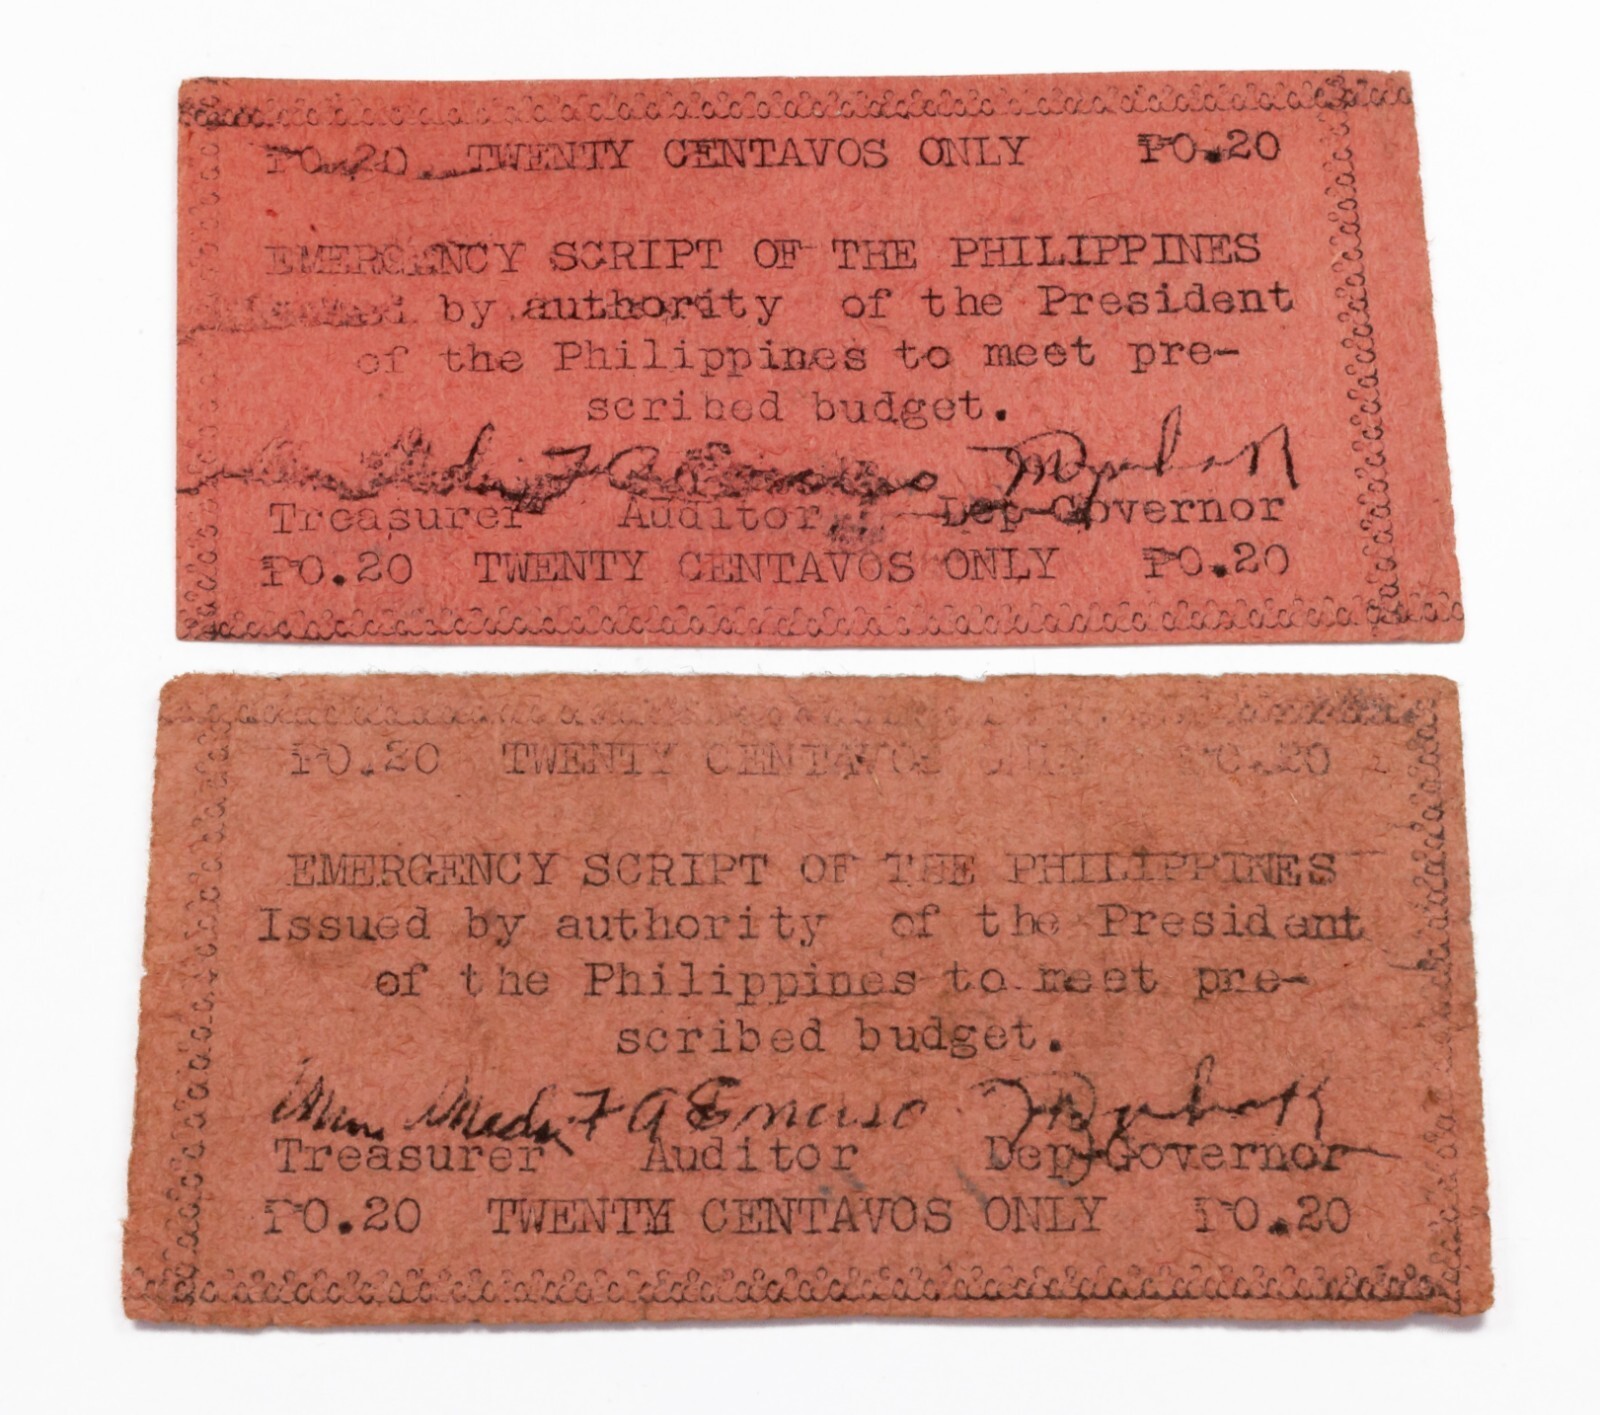 ₱0.20 TWENTY CENTAVOS ONLY ₱0.20
EMERGENCY SCRIPT OF THE PHILIPPINES
by authority of the President
of the Philippines to meet pre-
scribed budget.
Treasurer Auditor Dep-Governor
₱0.20 TWENTY CENTAVOS ONLY ₱0.20
₱0.20 TWENTY CENTAVOS ONLY ₱0.20
EMERGENCY SCRIPT OF THE PHILIPPINES
Issued by authority of the President
of the Philippines to meet pre-
scribed budget.
Treasurer Auditor Dep-Governor
₱0.20 TWENTY CENTAVOS ONLY ₱0.20